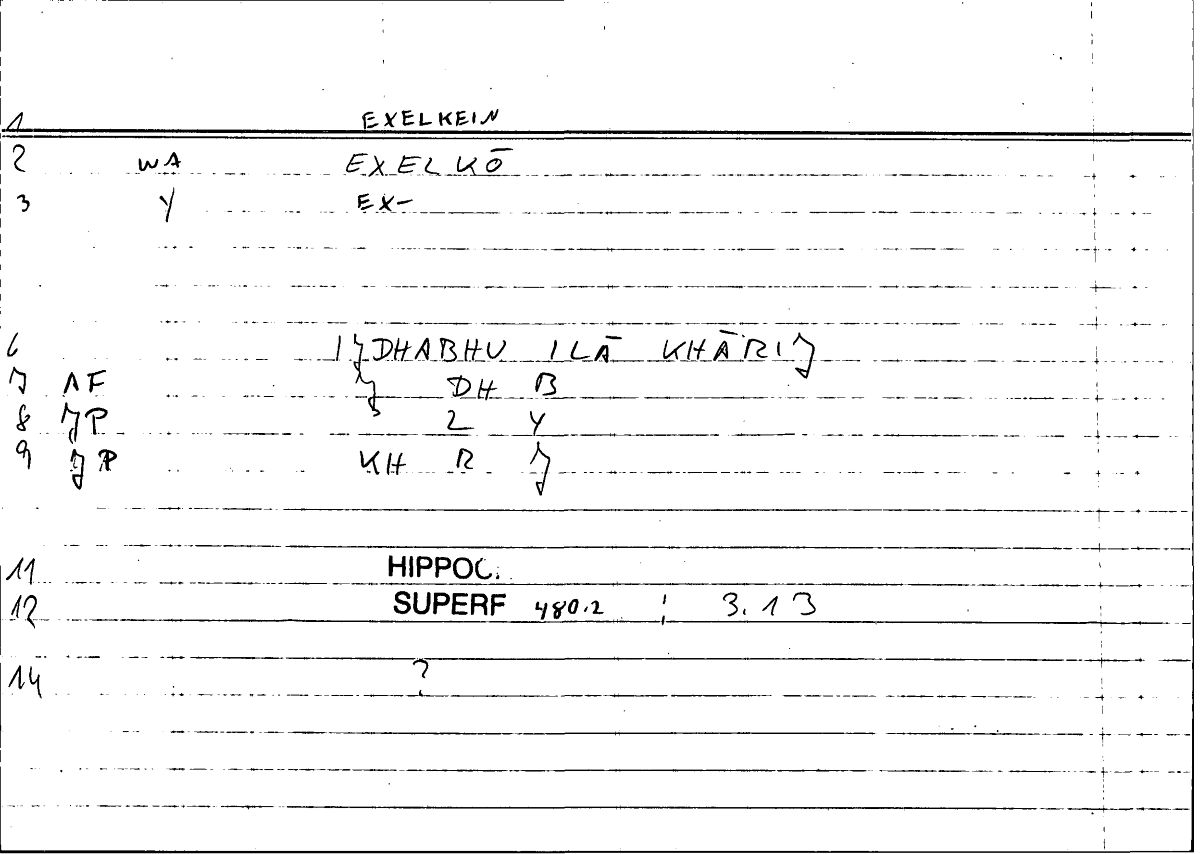 1 EXELKEIN
2 WA EXELKŌ
3 Y EX-
6 IJDHABHU ILĀ KHĀRIJ
7 1F J DH B
8 JP L Y
9 JP KH R J
11 HIPPOC.
12 SUPERF 480.2 ; 3.13
14 ?